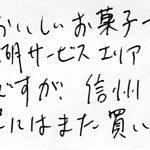 おいしいお菓子
明サービスエリア
ですが、信州
にはまた買い